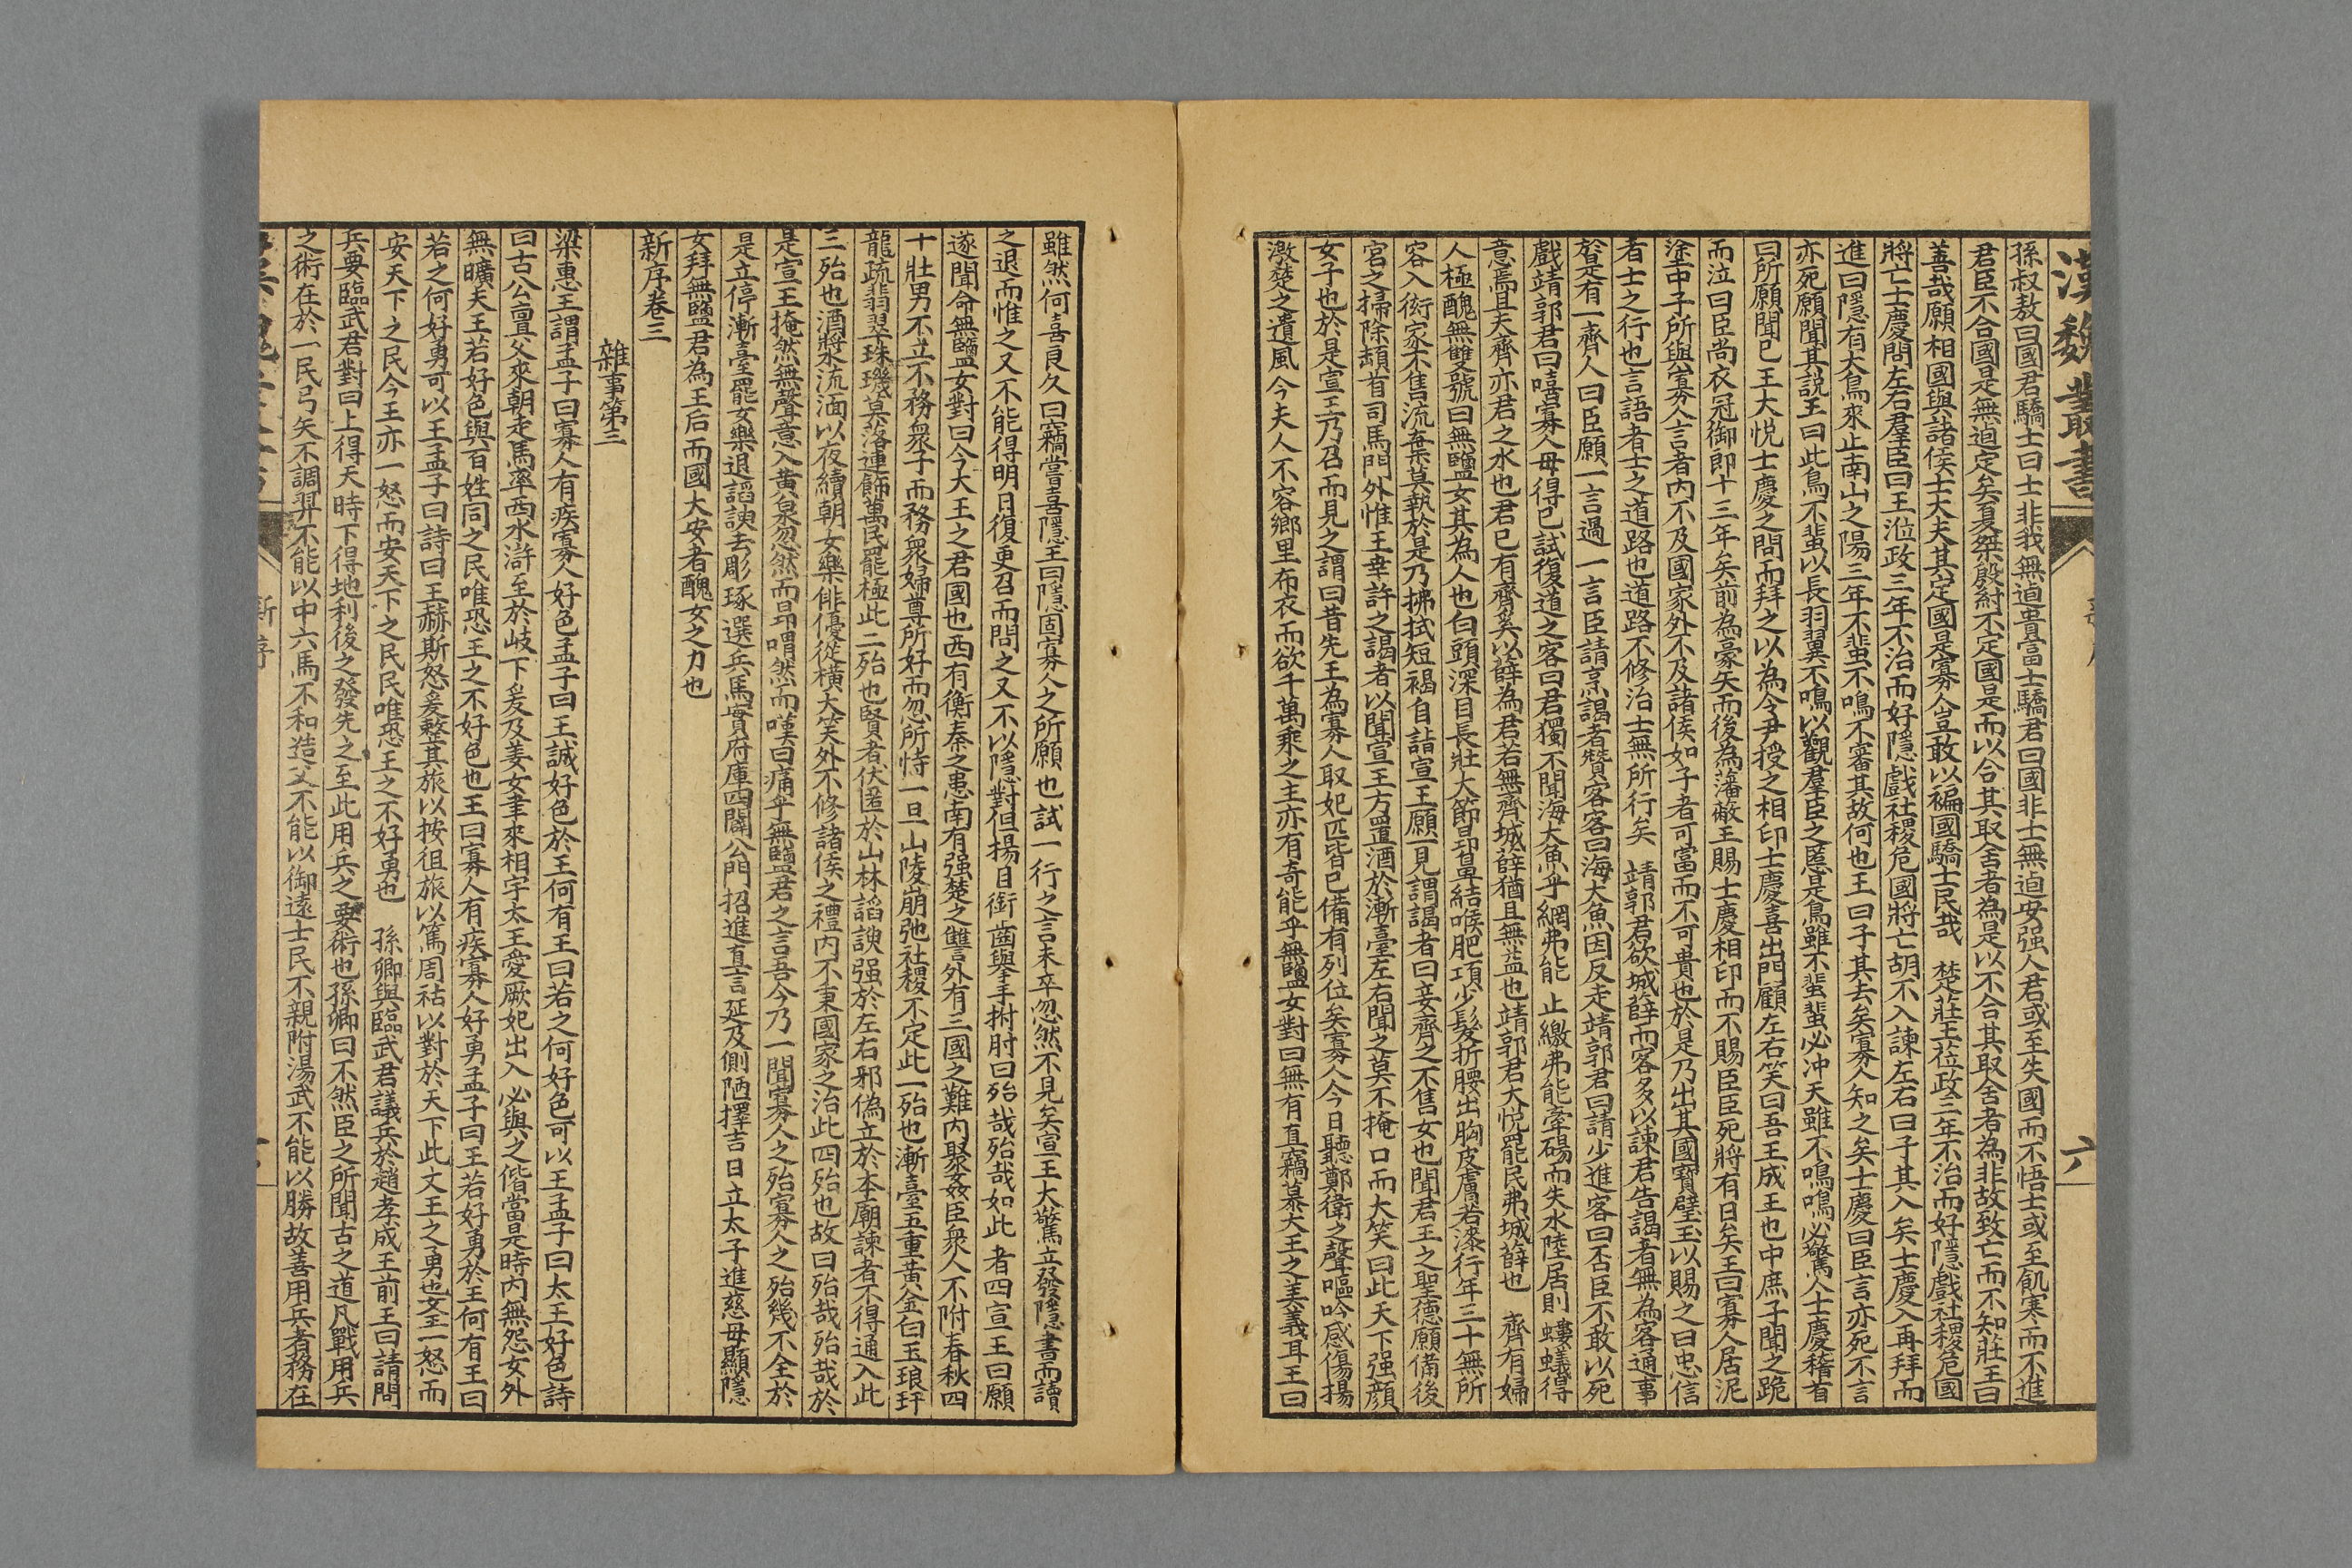 漢魏叢書
六
孫叔敖曰國君驕士曰士非我無逌貴富士驕君曰國非士無逌安强人君或至失國而不悟士或至飢寒而不進
君臣不合國是無逌定矣夏桀殷紂不定國是而以合其取舍者為是以不合其取舍者為非故致亡而不知莊王曰
善哉願相國與諸侯士大夫共定國是寡人豈敢以褊國驕士民哉　楚莊王莅政三年不治而好隱戲社稷危國
將亡士慶問左右羣臣曰王涖政三年不治而好隱戲社稷危國將亡胡不入諫左右曰子其入矣士慶入再拜而
進曰隱有大鳥來止南山之陽三年不蜚不鳴不審其故何也王曰子其去矣寡人知之矣士慶曰臣言亦死不言
亦死願聞其説王曰此鳥不蜚以長羽翼不鳴以觀羣臣之慝是鳥雖不蜚蜚必冲天雖不鳴鳴必驚人士慶稽首
曰所願聞已王大悦士慶之問而拜之以為令尹授之相印士慶喜出門顧左右笑曰吾王成王也中庶子聞之跪
而泣曰臣尚衣冠御郎十三年矣前為豪矢而後為藩蔽王賜士慶相印而不賜臣臣死將有日矣王曰寡人居泥
塗中子所與寡人言者内不及國家外不及諸侯如子者可富而不可貴也於是乃出其國寶璧玉以賜之曰忠信
者士之行也言語者士之道路也道路不修治士無所行矣　靖郭君欲城薛而客多以諫君告謁者無為客通事
於是有一齊人曰臣願一言過一言臣請烹謁者贊客客曰海大魚因反走靖郭君曰請少進客曰否臣不敢以死
戲靖郭君曰嘻寡人毋得已試復道之客曰君獨不聞海大魚乎網弗能　止繳弗能牽碭而失水陸居則螻蟻得
意焉且夫齊亦君之水也君已有齊奚以薛為君若無齊城薛猶且無益也靖郭君大悦罷民弗城薛也　齊有婦
人極醜無雙號曰無鹽女其為人也臼頭深目長壯大節昂鼻結喉肥項少髮折腰出胸皮膚若漆行年三十無所
容入衒家不售流棄莫執於是乃拂拭短褐自詣宣王願一見謂謁者曰妾齊之不售女也聞君王之聖德願備後
宮之掃除頓首司馬門外惟王幸許之謁者以聞宣王方置酒於漸臺左右聞之莫不掩口而大笑曰此天下强顔
女子也於是宣王乃召而見之謂曰昔先王為寡人取妃匹皆已備有列位矣寡人今日聽鄭衛之聲嘔吟感傷揚
激楚之遺風今夫人不容鄉里布衣而欲干萬乘之主亦有奇能乎無鹽女對曰無有直竊慕大王之美義耳王曰
雖然何喜良久曰竊嘗喜隱王曰隱固寡人之所願也試一行之言未卒忽然不見矣宣王大驚立發隱書而讀
之退而惟之又不能得明日復更召而問之又不以隱對但揚目銜齒舉手拊肘曰殆哉殆哉如此者四宣王曰願
遂聞命無鹽女對曰今大王之君國也西有衡秦之患南有强楚之讐外有三國之難内聚姦臣衆人不附春秋四
十壯男不立不務衆子而務衆婦尊所好而忽所恃一旦山陵崩弛社稷不定此一殆也漸臺五重黄金白玉琅玕
龍疏翡翠珠璣莫落連飾萬民罷極此二殆也賢者伏匿於山林諂諛强於左右邪偽立於本廟諫者不得通入此
三殆也酒漿流湎以夜續朝女樂俳優從横大笑外不修諸侯之禮内不秉國家之治此四殆也故曰殆哉殆哉於
是宣王掩然無聲意入黄泉忽然而昂喟然而嘆曰痛乎無鹽君之言吾今乃一聞寡人之殆寡人之殆幾不全於
是立停漸臺罷女樂退諂諛去彫琢選兵馬實府庫四闢公門招進直言延及側陋擇吉日立太子進慈母顯隱
女拜無鹽君為王后而國大安者醜女之力也
新序卷三
雜事第三
梁惠王謂孟子曰寡人有疾寡人好色孟子曰王誠好色於王何有王曰若之何好色可以王孟子曰太王好色詩
曰古公亶父來朝走馬率西水滸至於岐下爰及姜女聿來相宇太王愛厥妃出入必與之偕當是時内無怨女外
無曠夫王若好色與百姓同之民唯恐王之不好色也王曰寡人有疾寡人好勇孟子曰王若好勇於王何有王曰
若之何好勇可以王孟子曰詩曰王赫斯怒爰整其旅以按徂旅以篤周祜以對於天下此文王之勇也文王一怒而
安天下之民今王亦一怒而安天下之民民唯恐王之不好勇也　孫卿與臨武君議兵於趙孝成王前王曰請問
兵要臨武君對曰上得天時下得地利後之發先之至此用兵之要術也孫卿曰不然臣之所聞古之道凡戰用兵
之術在於一民弓矢不調羿不能以中六馬不和造父不能以御遠士民不親附湯武不能以勝故善用兵者務在
新序